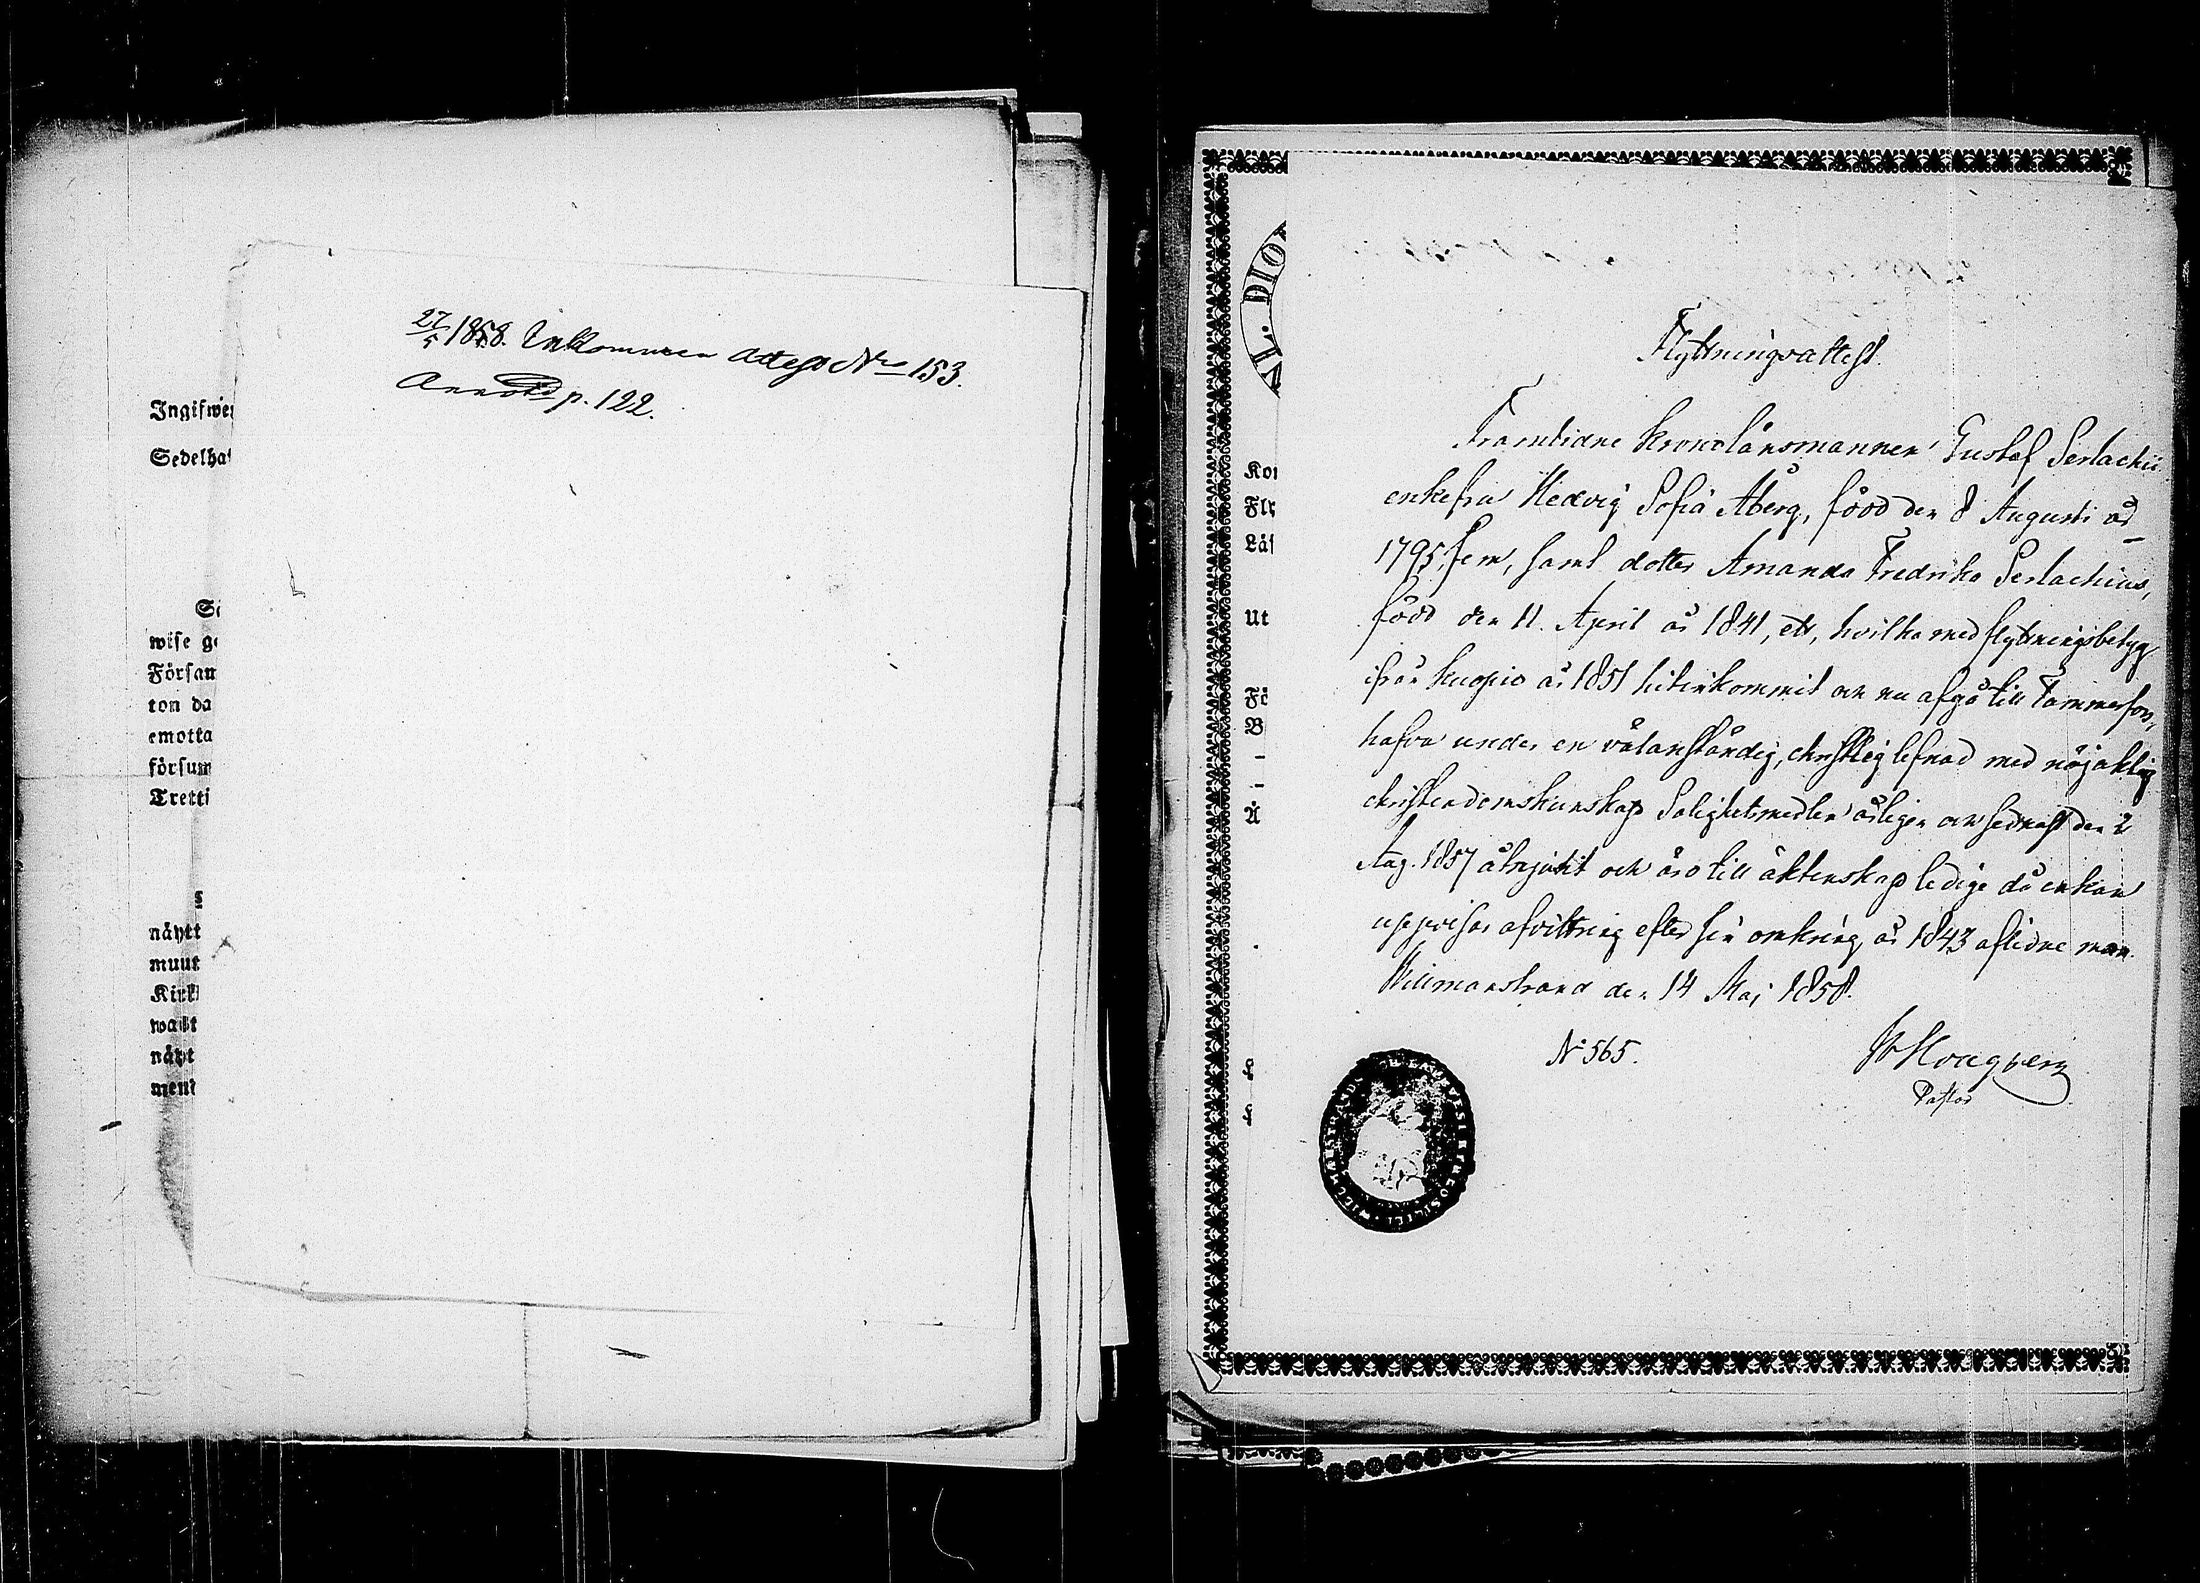 27/5 1858. Inkommen attest No 153.
Annotd p. 122.
Ingifwe
Sedelha
Si
wise ge
Församl
ton da
emotta
försum
Tretti
näytt
muut
Kirk
wast
näyt
ment
VL. DIO
Kor
Fly
Läs
Ut
Fö
B
-
-
Å
Flyttningsattest.
Framlidne Kronolänsmannen Gustaf Serlachii
enkefru Hedvig Sofia Åberg, född den 8 Augusti år
1795, fem, samt dotter Amanda Fredrika Serlachius,
född den 11. April år 1841, ett, hvilka med flyttningsbetyg
ifrån Kuopio år 1851 hitinkommit och nu afgå till Tammerfors,
hafva under en välanständig, christlig lefnad med nöjaktig
christendomskunskap Salighetsmedlen årligen och sednast den 2
Aug. 1857 åtnjutit och äro till äktenskap ledige då enkan
uppvisar afvittring efter sin omkring år 1843 aflidne man.
Willmanstrand den 14 Maj 1858.
No 565.
Hougberg
Pastor